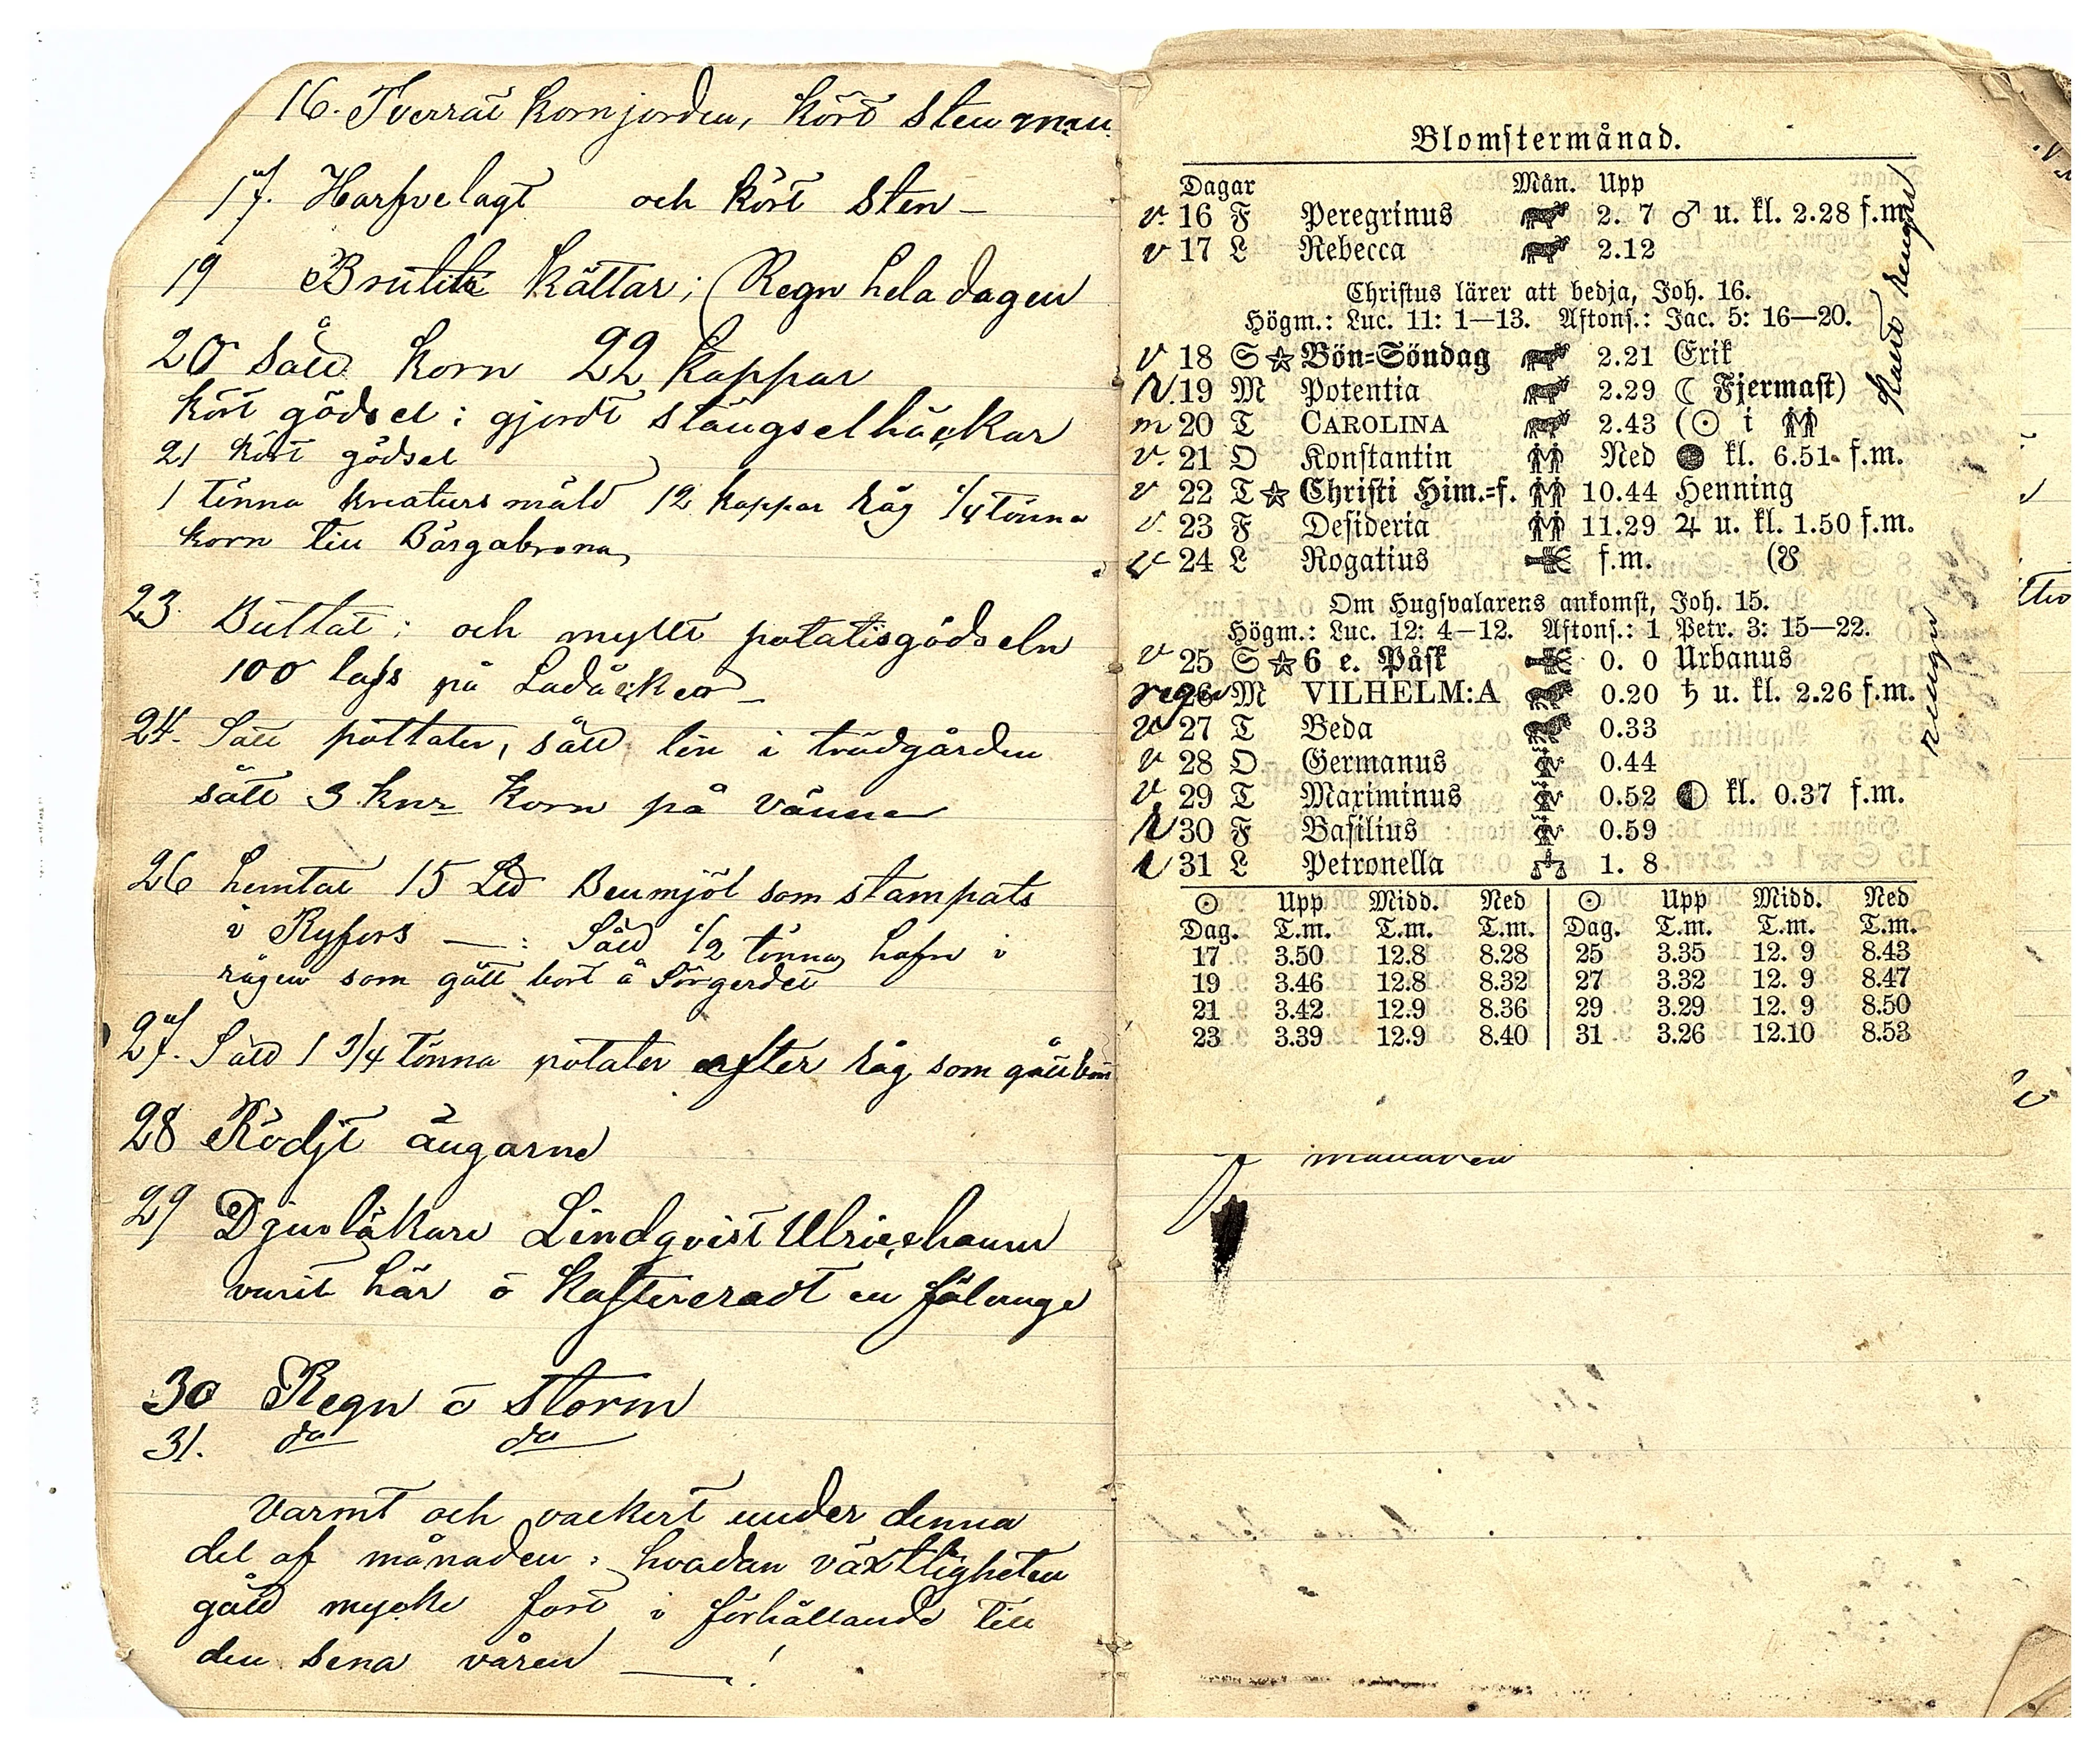 16. Tverrat kornjorden, kört sten
17. Harfvelagt och kört sten –
19 Brutit kättar; Regn hela dagen
20 sått korn 22 kappar
kört gödsel; gjordt stängselhäckar
21 kört gödsel
1 tönna kreatursmäld 12 kappar råg 1/4 tönna
korn till
23. Bultat; och myllt potatisgödseln
100 lass på Ladåcker –
24. Satt pottater, sått lin i trädgården
sått 3 knr korn på
26 hemtat 15 Lld Benmjöl som stampats
i Ryfors — : Sått 1/2 tönna hafre i
rågen som gått bort å Sörgerdet
27. Satt 1 3/4 tönna potater efter råg som gått bort
28 Rödjt ängarne
29 Djurläkare Lindqvist Ulricehamn
varit här o kastreradt en
30 Regn o storm
31. do do
Varmt och vackert under denna
del af månaden; hvadan växtligheten
gått mycke fort i förhållande till
den sena våren — !
Blomstermånad.
Dagar Mån. Upp
v. 16 F Peregrinus 2. 7 ♂ u. kl. 2.28 f.m.
v 17 L Rebecca 2.12
Christus lärer att bedja, Joh. 16.
Högm.: Luc. 11: 1—13. Aftons.: Jac. 5: 16—20.
v 18 S ☆ Bön-Söndag 2.21 Erik
R 19 M Potentia 2.29 ☾ Fjermast)
m 20 T CAROLINA 2.43 (☉ i ♊
v. 21 O Konstantin Ned ● kl. 6.51. f.m.
v 22 T ☆ Christi Him.-f. 10.44 Henning
v. 23 F Desideria 11.29 ♃ u. kl. 1.50 f.m.
v 24 L Rogatius f.m. (☋
Om Hugsvalarens ankomst, Joh. 15.
Högm.: Luc. 12: 4—12. Aftons.: 1 Petr. 3: 15—22.
v 25 S ☆ 6 e. Påsk 0. 0 Urbanus
regn 26 M VILHELM:A 0.20 ♄ u. kl. 2.26 f.m.
v 27 T Beda 0.33
v 28 O Germanus 0.44
v 29 T Maximinus 0.52 ◐ kl. 0.37 f.m.
R 30 F Basilius 0.59
R 31 L Petronella 1. 8
☉ Upp Midd. Ned ☉ Upp Midd. Ned
Dag. T.m. T.m. T.m. Dag. T.m. T.m. T.m.
17 3.50 12.8 8.28 25 3.35 12. 9 8.43
19 3.46 12.8 8.32 27 3.32 12. 9 8.47
21 3.42 12.9 8.36 29 3.29 12. 9 8.50
23 3.39 12.9 8.40 31 3.26 12.10 8.53
månaden